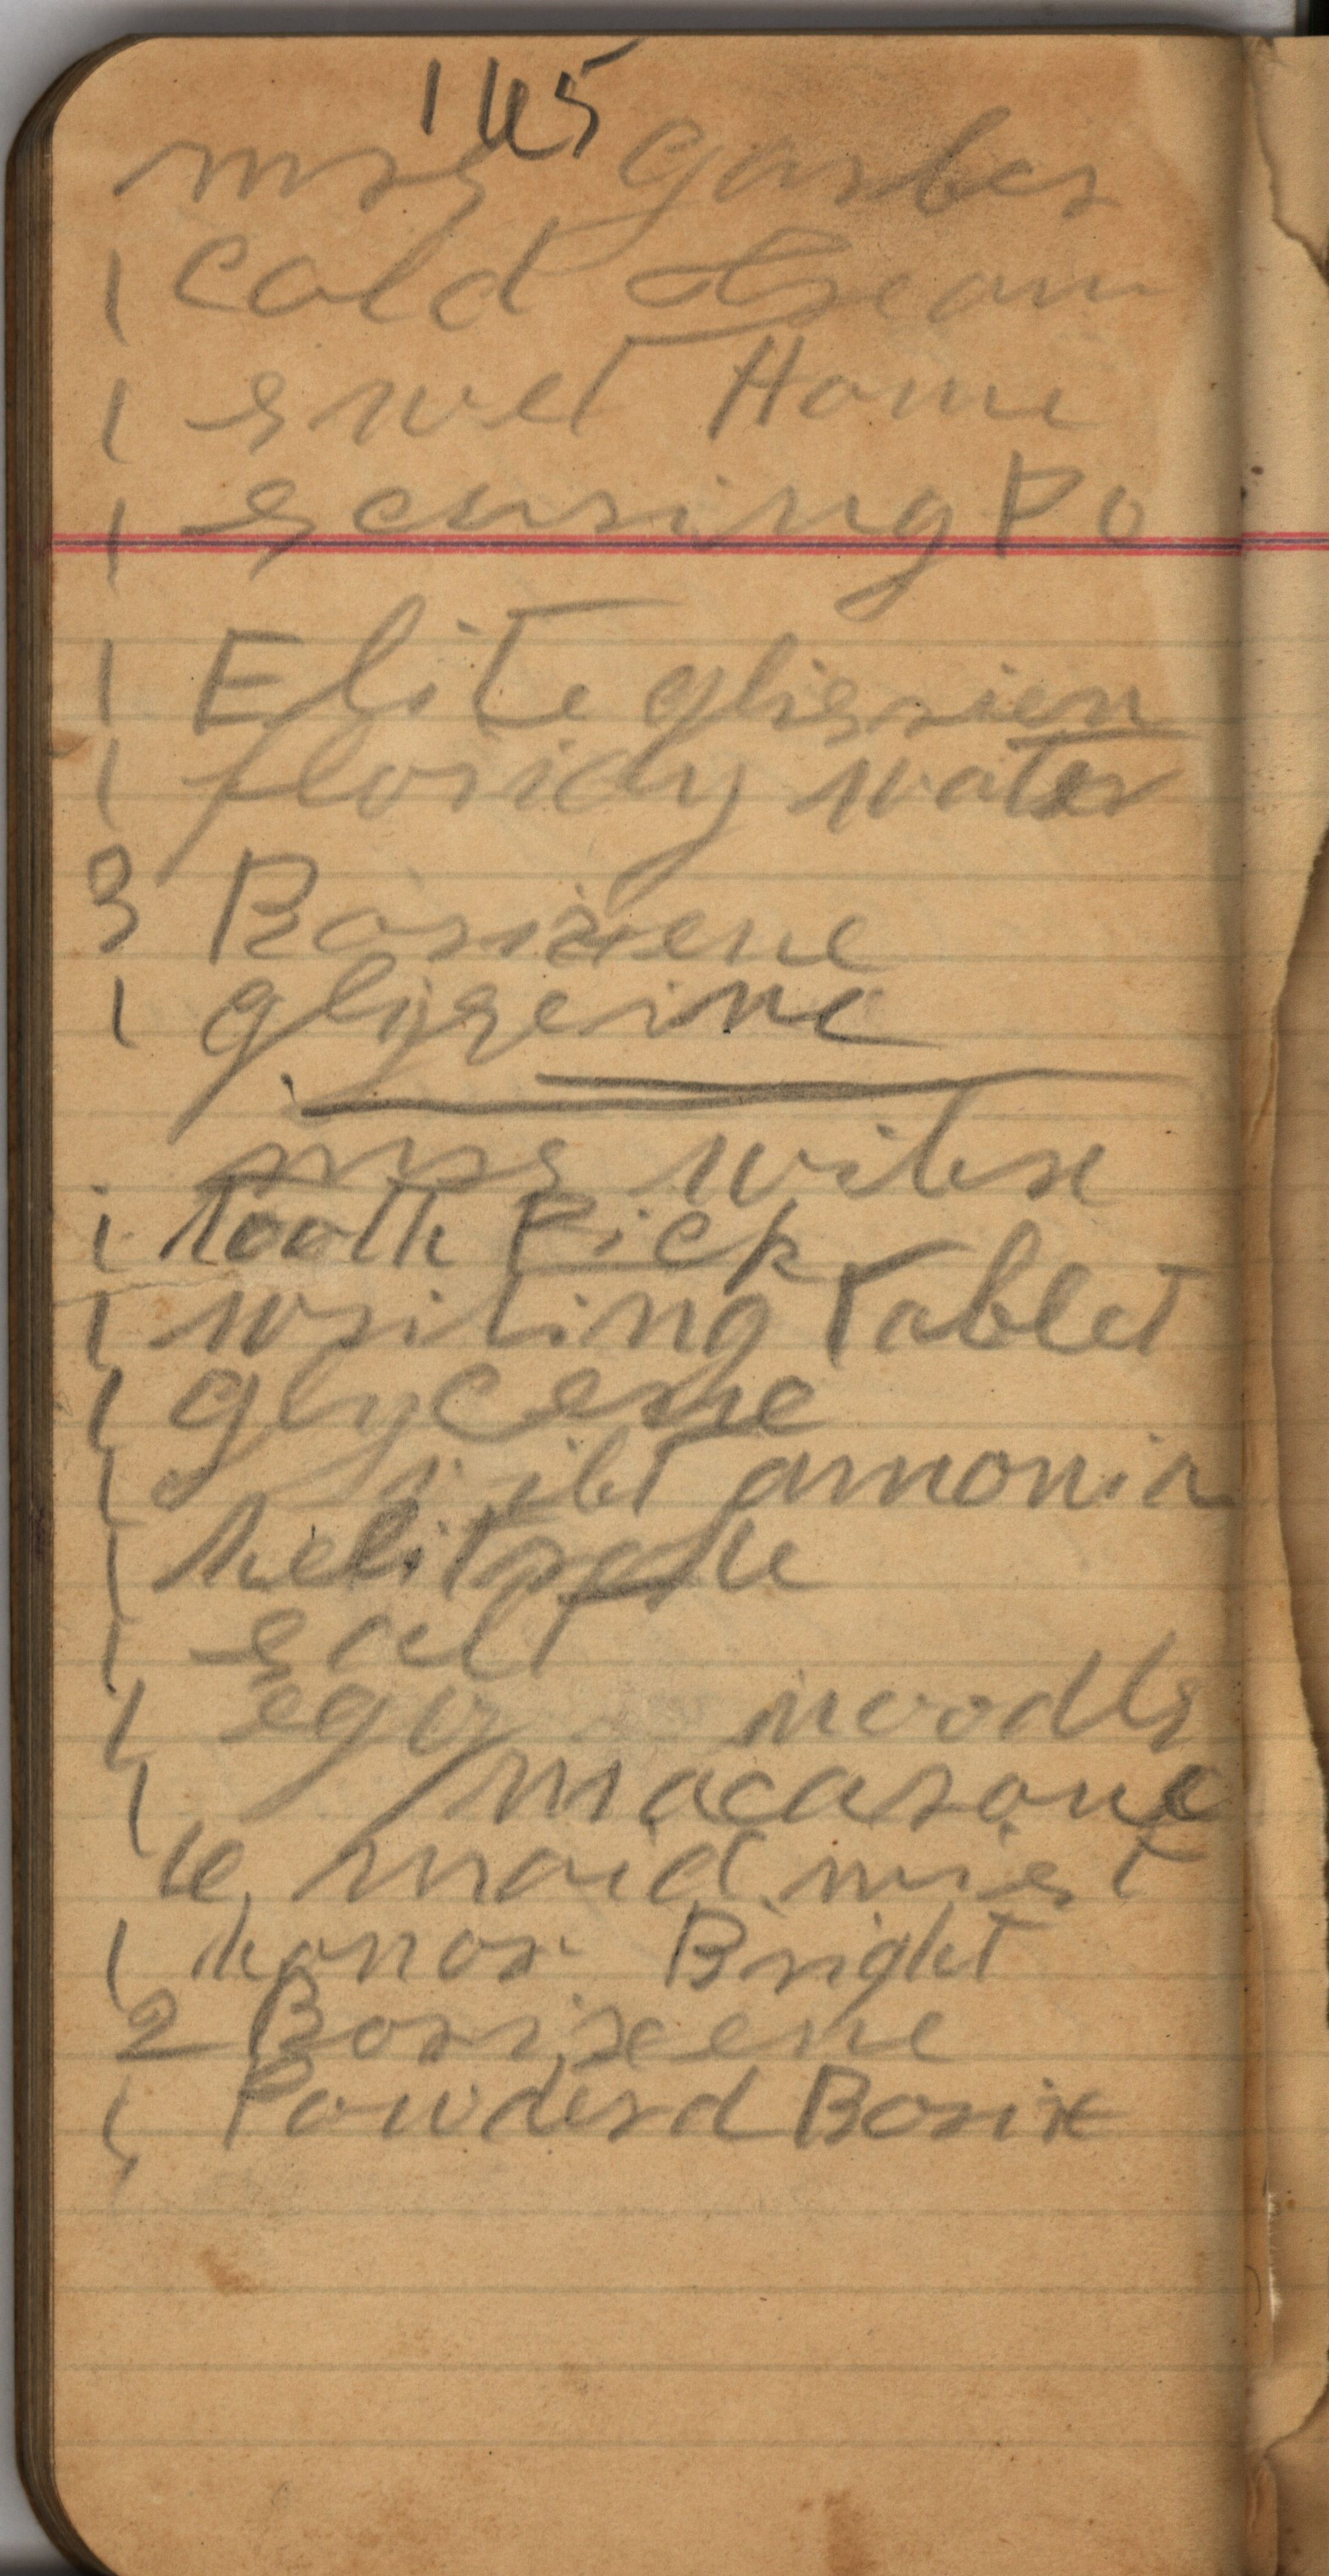 145
mrs garber
1 cold cream
1 swet Home
1 scuring Po
1 Elite glissien
1 floridy water
3 Borixene
1 glyseine
mrs wilse
1 tooth Pick
1 writing Tablet
1 glycerne
1 amonia
1 helitrope
1 salt
1 egg noodls
1 macarone
6 maid mist
1 honor Bright
2 Borixene
1 Powderd Borix